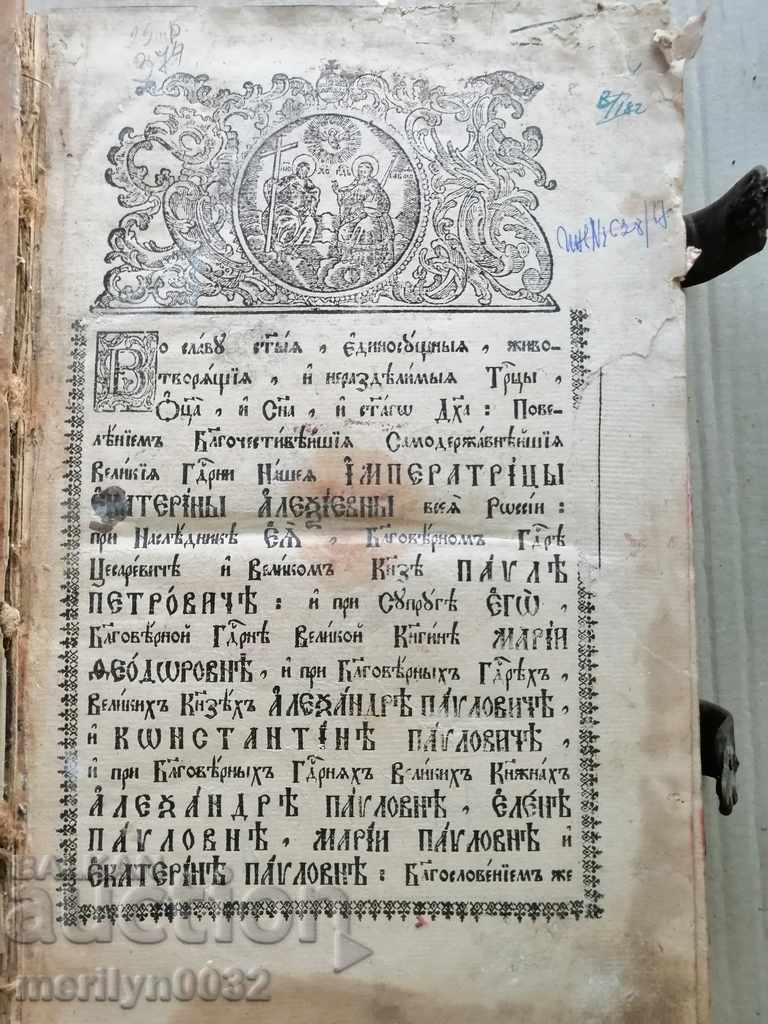 Во славу ст҃ыѧ, є҆диносꙋщныѧ, живо-
творѧщїѧ, и҆ нераздѣлимыѧ Трⷪ҇цы,
Ѻ҆ц҃а, и҆ Сн҃а, и҆ ст҃агѡ Дх҃а: Пове-
лѣнїемъ Бл҃гочестивѣйшїѧ Самодержавнѣйшїѧ
Великїѧ Гдⷭ҇рни Нашеѧ І҆МПЕРАТРІЦЫ
Є҆КАТЕРІ́НЫ А҆ЛЕѮІ́ЕВНЫ всеѧ̀ Рѡссїи:
при Наслѣдникѣ Є҆Ѧ̀, Бл҃говѣрномъ Гдⷭ҇рѣ
Цесаревичѣ и҆ Великомъ Кн҃зѣ ПА́VЛѢ
ПЕТРО́ВИЧѢ: и҆ при Сꙋпрꙋгѣ Є҆ГѠ̀,
Бл҃говѣрной Гдⷭ҇рнѣ Великой Кн҃гинѣ МАРІ́И
Ѳ҆ЕО́ДѠРОВНѢ, и҆ при Бл҃говѣрныхъ Гдⷭ҇рехъ,
Великихъ Кн҃зехъ А҆ЛЕѮА́НДРѢ ПА́VЛОВИЧѢ,
и҆ КѠНСТАНТІ́НѢ ПА́VЛОВИЧѢ,
и҆ при Бл҃говѣрныхъ Гдⷭ҇рнѧхъ Великихъ Кн҃жнахъ
А҆ЛЕѮА́НДРѢ ПА́VЛОВНѢ, Є҆ЛЕ́НѢ
ПА́VЛОВНѢ, МАРІ́И ПА́VЛОВНѢ и҆
Є҆КАТЕРІ́НѢ ПА́VЛОВНѢ: Бл҃гословенїемъ же
БАЛКАН
auction
merilyn0032